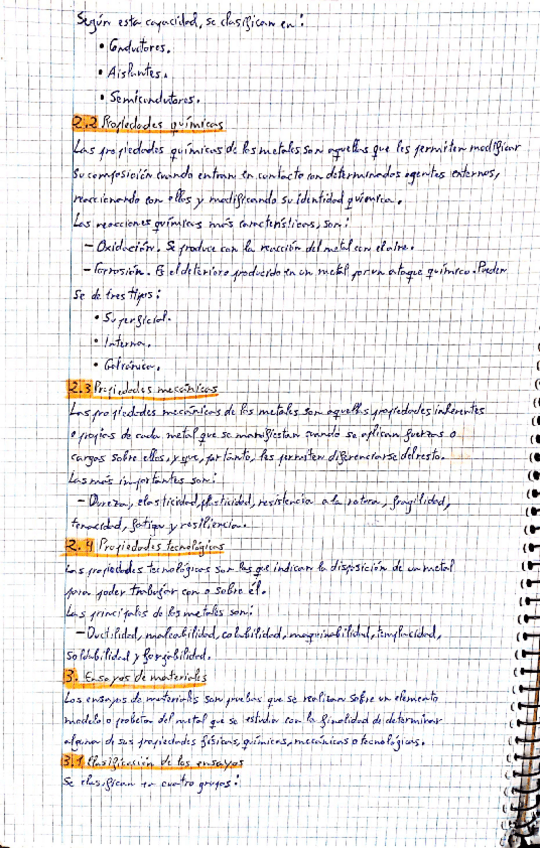 Según esta capacidad, se clasifican en:
• Conductores.
• Aislantes.
• Semiconductores.
2.2 Propiedades químicas
Las propiedades químicas de los metales son aquellas que les permiten modificar
su composición cuando entran en contacto con determinados agentes externos,
reaccionando con ellos y modificando su identidad química.
Las reacciones químicas más características, son:
- Oxidación. Se produce con la reacción del metal con el aire.
- Corrosión. Es el deterioro producido en un metal por un ataque químico. Pueden
se de tres tipos:
• Superficial.
• Interna.
• Galvánica.
2.3 Propiedades mecánicas
Las propiedades mecánicas de los metales son aquellas propiedades inherentes
o propias de cada metal que se manifiestan cuando se aplican fuerzas o
cargas sobre ellos, y que, por tanto, les permiten diferenciarse del resto.
Las más importantes son:
- Dureza, elasticidad, plasticidad, resistencia a la rotura, fragilidad,
tenacidad, fatiga y resiliencia.
2.4 Propiedades tecnológicas
Las propiedades tecnológicas son las que indican la disposición de un metal
para poder trabajar con o sobre él.
Las principales de los metales son:
- Ductilidad, maleabilidad, colabilidad, maquinabilidad, templacidad,
soldabilidad y forjabilidad.
3. Ensayos de materiales
Los ensayos de materiales son pruebas que se realizan sobre un elemento
modelo o probeta del metal que se estudia con la finalidad de determinar
algunas de sus propiedades físicas, químicas, mecánicas o tecnológicas.
3.1 Clasificación de los ensayos
Se clasifican en cuatro grupos: